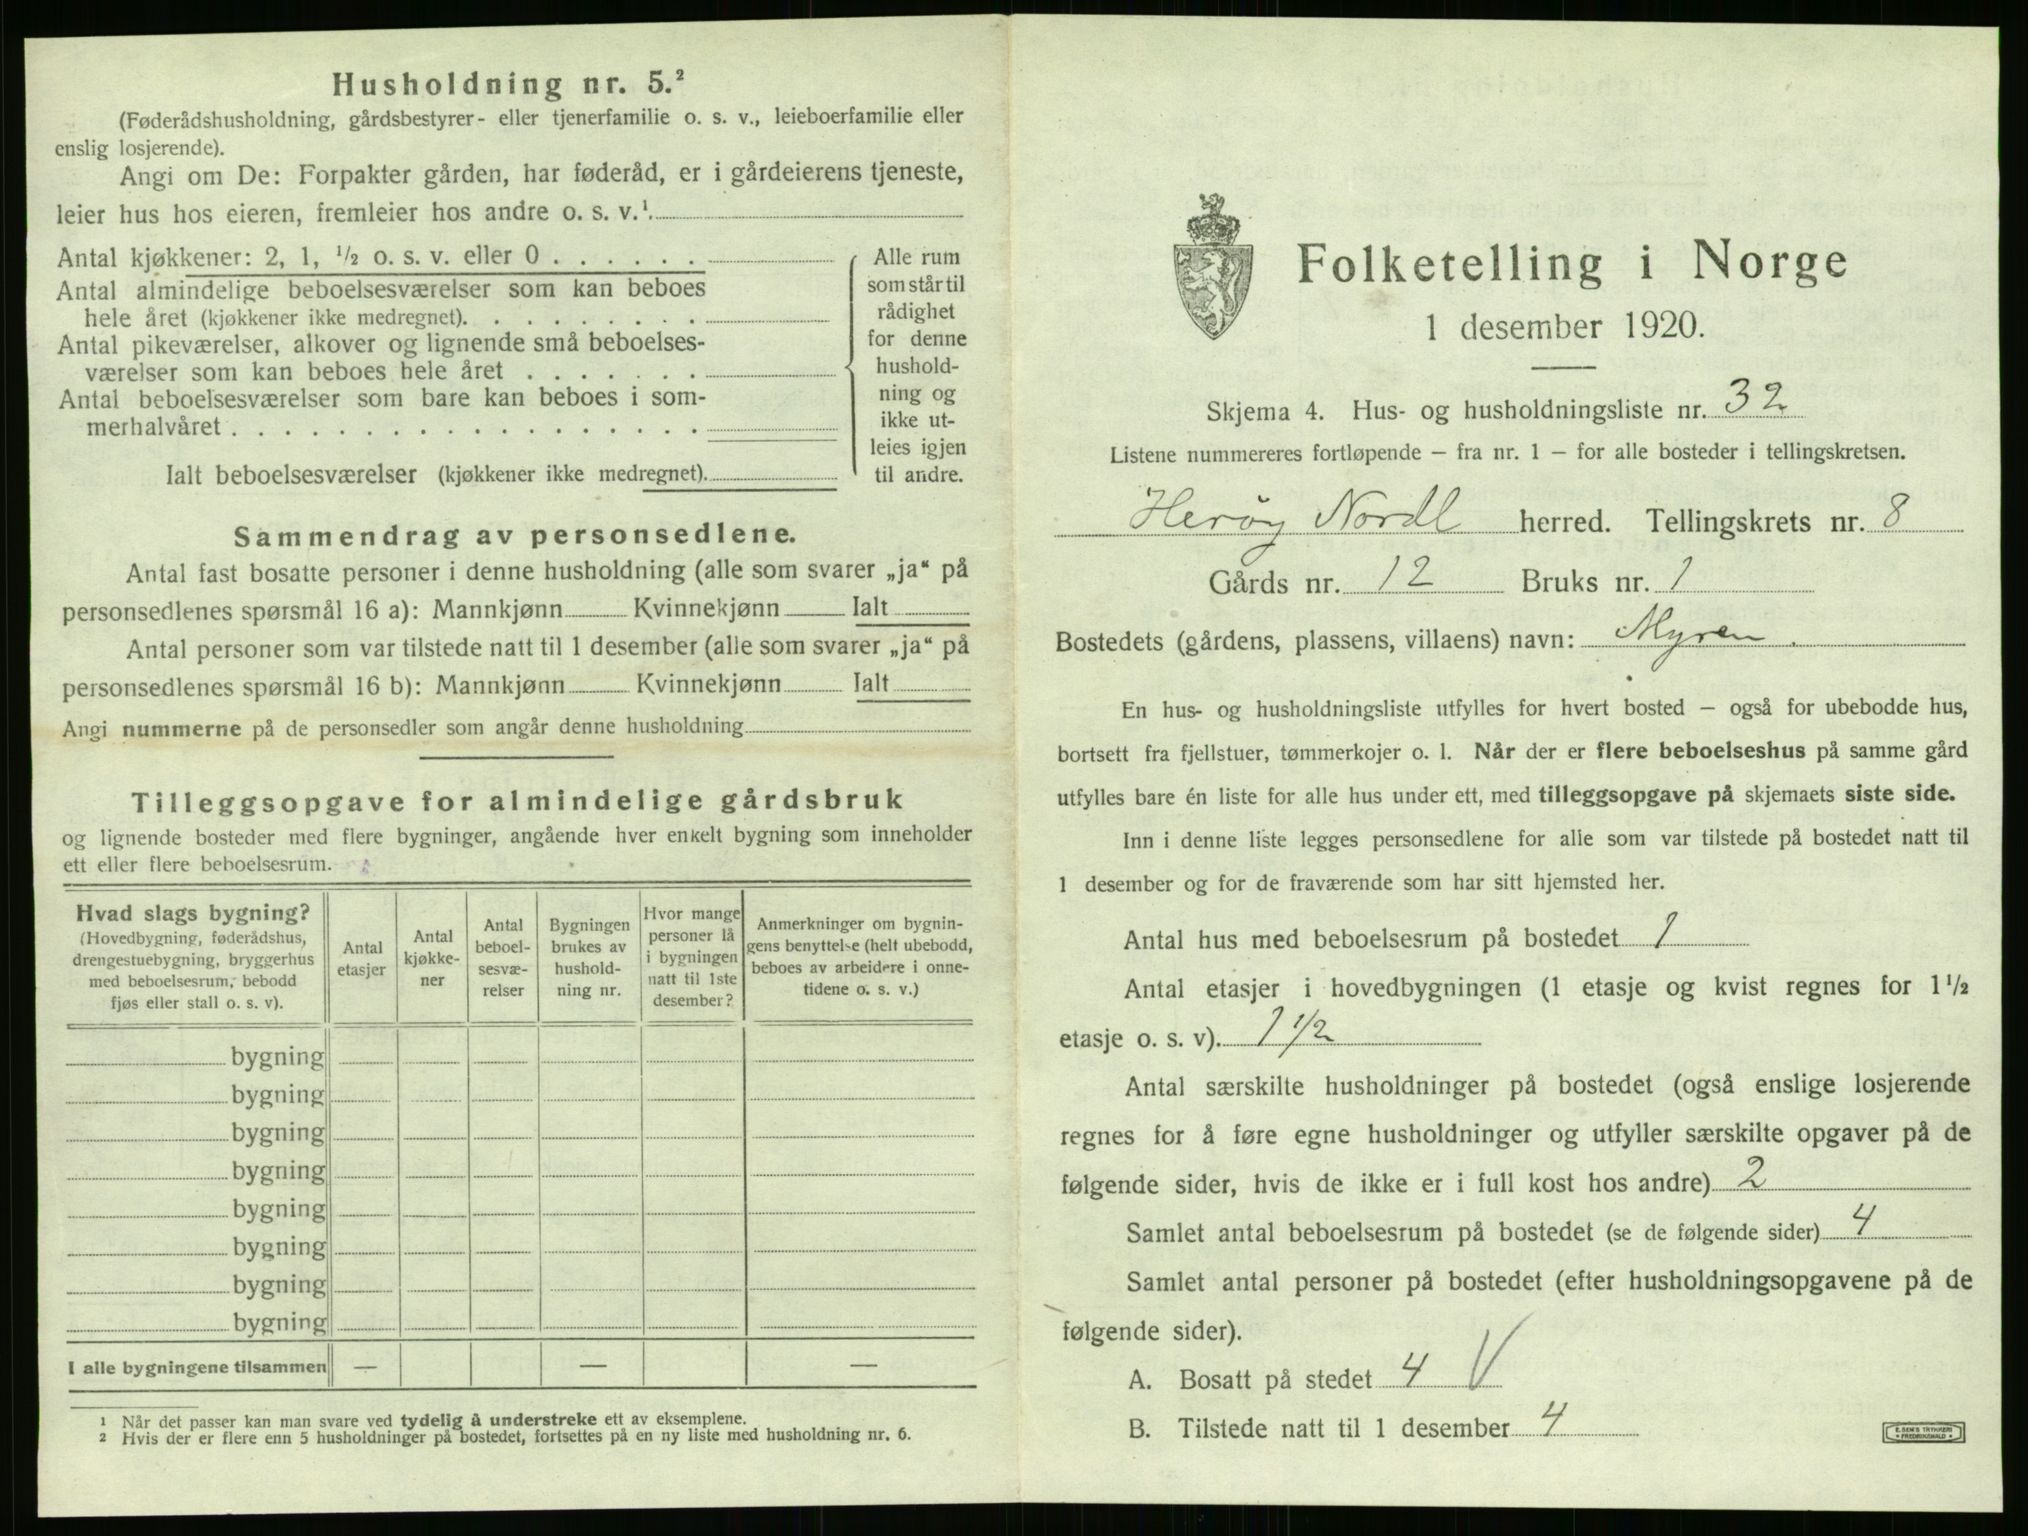 Husholdning nr. 5.²
(Føderådshusholdning, gårdsbestyrer- eller tjenerfamilie o. s. v., leieboerfamilie eller
enslig losjerende).
Angi om De: Forpakter gården, har føderåd, er i gårdeierens tjeneste,
leier hus hos eieren, fremleier hos andre o. s. v.¹
Antal kjøkkener: 2, 1, ½ o. s. v. eller 0 . . . . . .
Antal almindelige beboelsesværelser som kan beboes
hele året (kjøkkener ikke medregnet). . . . . . . . .
Antal pikeværelser, alkover og lignende små beboelses-
værelser som kan beboes hele året . . . . . . .
Antal beboelsesværelser som bare kan beboes i som-
merhalvåret . . . . . . . . . . . . . . . . . .
Ialt beboelsesværelser (kjøkkener ikke medregnet).
Alle rum
som står til
rådighet
for denne
hushold-
ning og
ikke ut-
leies igjen
til andre.
Sammendrag av personsedlene.
Antal fast bosatte personer i denne husholdning (alle som svarer „ja“ på
personsedlenes spørsmål 16 a): Mannkjønn Kvinnekjønn Ialt
Antal personer som var tilstede natt til 1 desember (alle som svarer „ja“ på
personsedlenes spørsmål 16 b): Mannkjønn Kvinnekjønn Ialt
Angi nummerne på de personsedler som angår denne husholdning
Tilleggsopgave for almindelige gårdsbruk
og lignende bosteder med flere bygninger, angående hver enkelt bygning som inneholder
ett eller flere beboelsesrum.
Hvad slags bygning?
(Hovedbygning, føderådshus,
drengestuebygning, bryggerhus
med beboelsesrum, bebodd
fjøs eller stall o. s. v).
Antal
etasjer
Antal
kjøkke-
ner
Antal
beboel-
sesvæ-
relser
Bygningen
brukes av
hushold-
ning nr.
Hvor mange
personer lå
i bygningen
natt til 1ste
desember?
Anmerkninger om bygnin-
gens benyttelse (helt ubebodd,
beboes av arbeidere i onne-
tidene o. s. v.)
bygning
bygning
bygning
bygning
bygning
bygning
bygning
bygning
I alle bygningene tilsammen — — —
1 Når det passer kan man svare ved tydelig å understreke ett av eksemplene.
2 Hvis der er flere enn 5 husholdninger på bostedet, fortsettes på en ny liste med husholdning nr. 6.
Folketelling i Norge
1 desember 1920.
Skjema 4. Hus- og husholdningsliste nr. 32
Listene nummereres fortløpende — fra nr. 1 — for alle bosteder i tellingskretsen.
Herøy Nordl herred. Tellingskrets nr. 8
Gårds nr. 12 Bruks nr. 1
Bostedets (gårdens, plassens, villaens) navn: Myren .
En hus- og husholdningsliste utfylles for hvert bosted — også for ubebodde hus,
bortsett fra fjellstuer, tømmerkojer o. l. Når der er flere beboelseshus på samme gård
utfylles bare én liste for alle hus under ett, med tilleggsopgave på skjemaets siste side.
Inn i denne liste legges personsedlene for alle som var tilstede på bostedet natt til
1 desember og for de fraværende som har sitt hjemsted her.
Antal hus med beboelsesrum på bostedet 1
Antal etasjer i hovedbygningen (1 etasje og kvist regnes for 1½
etasje o. s. v). 1½
Antal særskilte husholdninger på bostedet (også enslige losjerende
regnes for å føre egne husholdninger og utfyller særskilte opgaver på de
følgende sider, hvis de ikke er i full kost hos andre) 2
Samlet antal beboelsesrum på bostedet (se de følgende sider) 4
Samlet antal personer på bostedet (efter husholdningsopgavene på de
følgende sider).
A. Bosatt på stedet 4 V
B. Tilstede natt til 1 desember 4
E. SEM'S TRYKKERI
FREDRIKSHALD